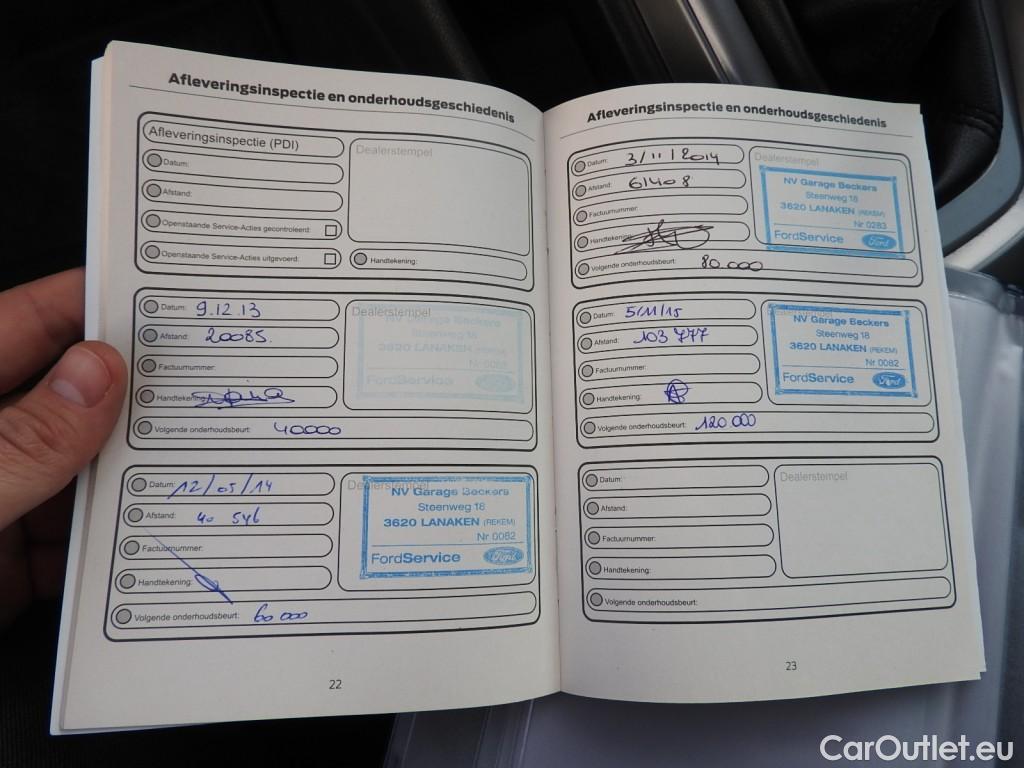 Afleveringsinspectie en onderhoudsgeschiedenis
Afleveringsinspectie (PDI)
Dealerstempel
Datum:
Afstand:
Openstaande Service-Acties gecontroleerd:
Openstaande Service-Acties uitgevoerd:
Handtekening:
Datum: 9.12.13
Dealerstempel
NV Garage Beckers
Steenweg 18
3620 LANAKEN (REKEM)
FordService Ford
Afstand: 20085.
Factuurnummer:
Handtekening:
Volgende onderhoudsbeurt: 40000
Datum: 12/05/14
Dealerstempel
NV Garage Beckers
Steenweg 18
3620 LANAKEN (REKEM)
Nr 0082
FordService Ford
Afstand: 40 546
Factuurnummer:
Handtekening:
Volgende onderhoudsbeurt: 60 000
22
Afleveringsinspectie en onderhoudsgeschiedenis
Datum: 3/11/2014
Dealerstempel
NV Garage Beckers
Steenweg 18
3620 LANAKEN (REKEM)
Nr 0283
FordService Ford
Afstand: 61408
Factuurnummer:
Handtekening:
Volgende onderhoudsbeurt: 80.000
Datum: 5/11/15
NV Garage Beckers
Steenweg 18
3620 LANAKEN (REKEM)
Nr 0082
FordService Ford
Afstand: 103 777
Factuurnummer:
Handtekening:
Volgende onderhoudsbeurt: 120 000
Datum:
Dealerstempel
Afstand:
Factuurnummer:
Handtekening:
Volgende onderhoudsbeurt:
23
CarOutlet.eu